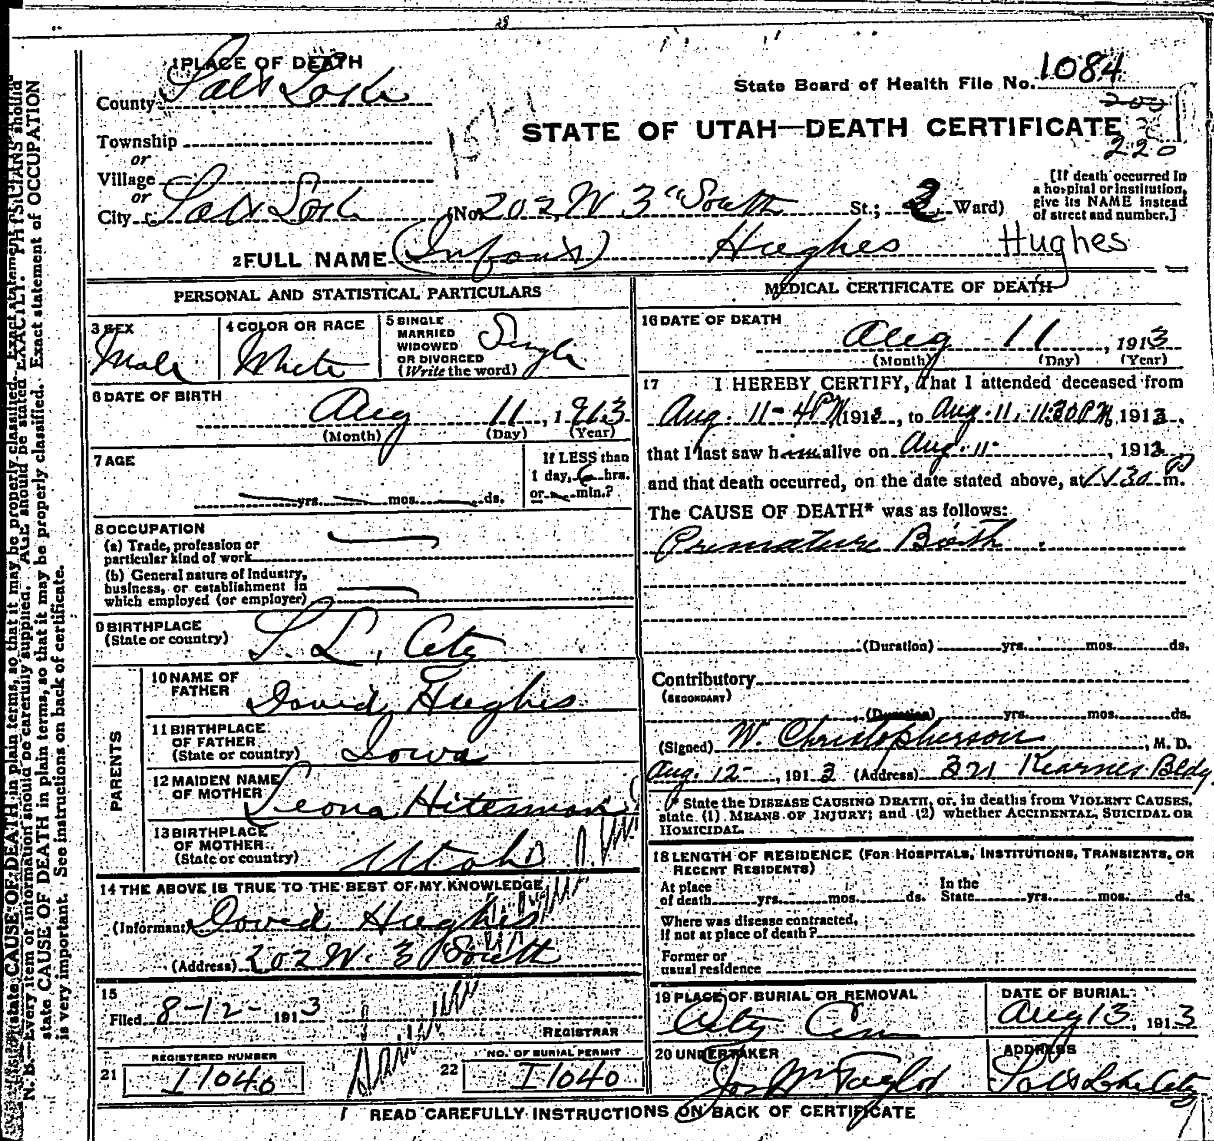 1 PLACE OF DEATH
County Salt Lake
State Board of Health File No. 1084
200
STATE OF UTAH—DEATH CERTIFICATE
220
Township
or
Village
or
City Salt Lake (No. 202 W 3" South St.; 2 Ward)
[If death occurred in
a hospital or institution,
give its NAME instead
of street and number.]
2 FULL NAME (Infant) Hughes Hughes
PERSONAL AND STATISTICAL PARTICULARS
3 SEX
Male
4 COLOR OR RACE
White
5 SINGLE
MARRIED
WIDOWED
OR DIVORCED
(Write the word)
Single
6 DATE OF BIRTH
Aug 11, 1913
(Month) (Day) (Year)
7 AGE
If LESS than
1 day, 6 hrs.
yrs. mos. ds. or min.?
8 OCCUPATION
(a) Trade, profession or
particular kind of work
(b) General nature of Industry,
business, or establishment in
which employed (or employer)
9 BIRTHPLACE
(State or country)
S. L. City
PARENTS
10 NAME OF
FATHER
David Hughes
11 BIRTHPLACE
OF FATHER
(State or country)
Iowa
12 MAIDEN NAME
OF MOTHER
Leona Hitesman
13 BIRTHPLACE
OF MOTHER
(State or country)
Utah
14 THE ABOVE IS TRUE TO THE BEST OF MY KNOWLEDGE
(Informant) David Hughes
(Address) 202 W. 3 South
15
Filed 8-12-1913
REGISTRAR
21 REGISTERED NUMBER
I1040
22 NO. OF BURIAL PERMIT
I1040
MEDICAL CERTIFICATE OF DEATH
16 DATE OF DEATH
Aug 11, 1913
(Month) (Day) (Year)
17 I HEREBY CERTIFY, that I attended deceased from
Aug. 11-4PM 1913, to Aug. 11, 11:30PM, 1913.
that I last saw him alive on Aug. 11, 1913
and that death occurred, on the date stated above, at 11:30 P m.
The CAUSE OF DEATH* was as follows:
Premature Birth
(Duration) yrs. mos. ds.
Contributory
(SECONDARY)
(Duration) yrs. mos. ds.
(Signed) W. Christopherson, M. D.
Aug. 12-, 1913 (Address) 321 Kearnes Bldg.
* State the DISEASE CAUSING DEATH, or, in deaths from VIOLENT CAUSES,
state (1) MEANS OF INJURY; and (2) whether ACCIDENTAL, SUICIDAL OR
HOMICIDAL.
18 LENGTH OF RESIDENCE (FOR HOSPITALS, INSTITUTIONS, TRANSIENTS, OR
RECENT RESIDENTS)
At place
of death yrs. mos. ds.
In the
State yrs. mos. ds.
Where was disease contracted,
if not at place of death?
Former or
usual residence
19 PLACE OF BURIAL OR REMOVAL
City Cem
DATE OF BURIAL
Aug 13, 1913
20 UNDERTAKER
Jos Wm Taylor
ADDRESS
Salt Lake City
READ CAREFULLY INSTRUCTIONS ON BACK OF CERTIFICATE
N. B.—Every item of information should be carefully supplied. AGE should be stated EXACTLY. PHYSICIANS should
state CAUSE OF DEATH in plain terms, so that it may be properly classified. Exact statement of OCCUPATION
is very important. See instructions on back of certificate.